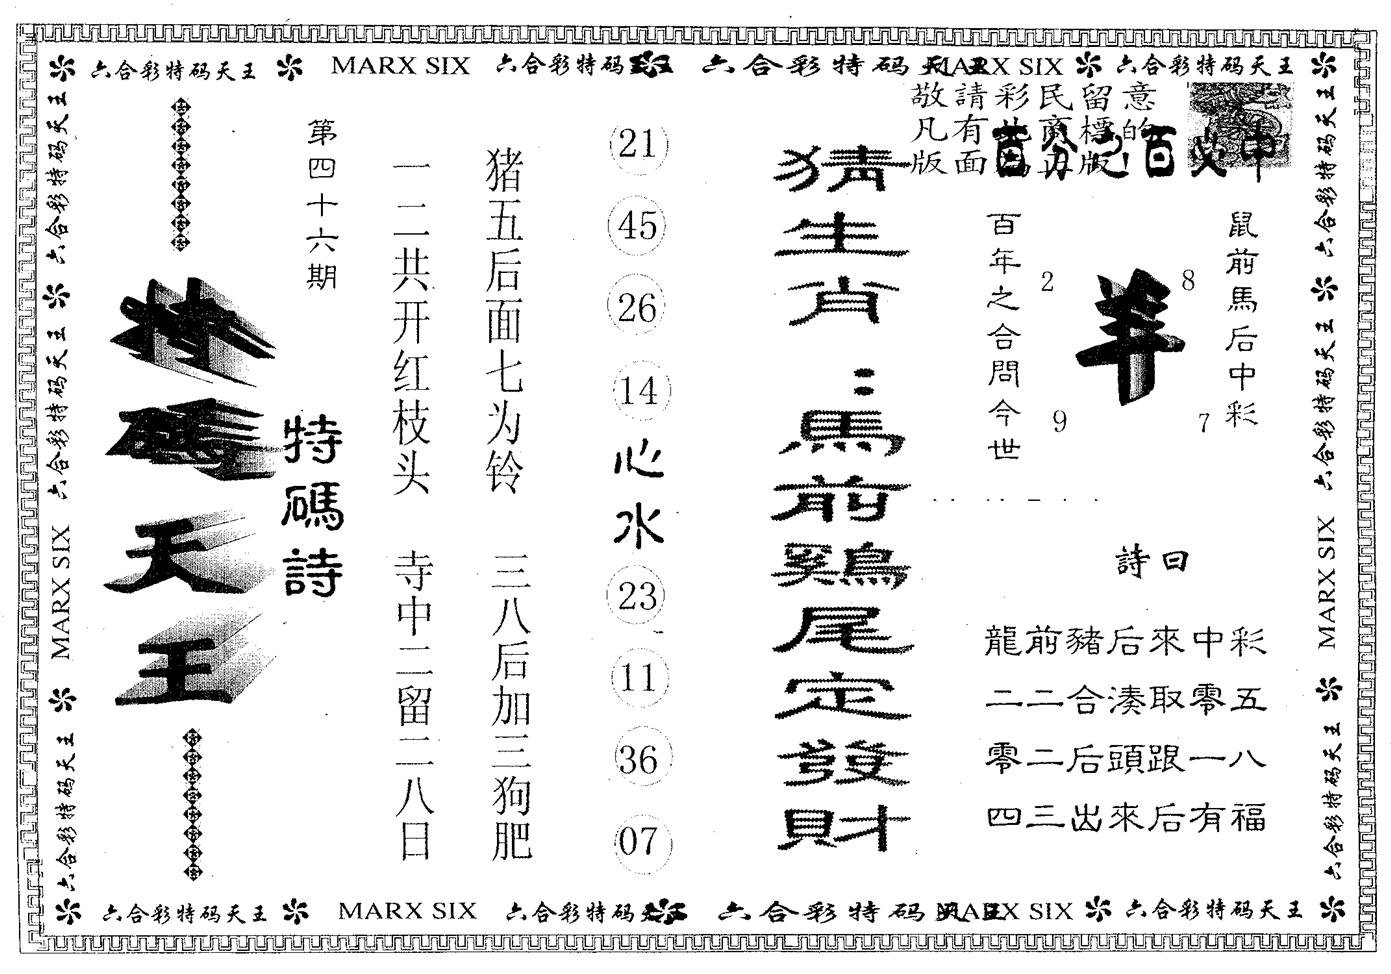 六合彩特码天王 MARX SIX 六合彩特码天王 六合彩特码天王 MARX SIX 六合彩特码天王
敬請彩民留意
凡有此商標的
版面為正版!
百分之百必中
第四十六期
特碼天王
特碼詩
一二共开红枝头 寺中二留二八日
猪五后面七为铃 三八后加三狗肥
21
45
26
14
心水
23
11
36
07
猜生肖:馬前鷄尾定發財
百年之合問今世
2 8
羊
9 7
鼠前馬后中彩
詩曰
龍前豬后來中彩
二二合湊取零五
零二后頭跟一八
四三出來后有福
六合彩特码天王 六合彩特码天王 MARX SIX 六合彩特码天王
六合彩特码天王 六合彩特码天王 MARX SIX 六合彩特码天王
六合彩特码天王 MARX SIX 六合彩特码天王 六合彩特码天王 MARX SIX 六合彩特码天王